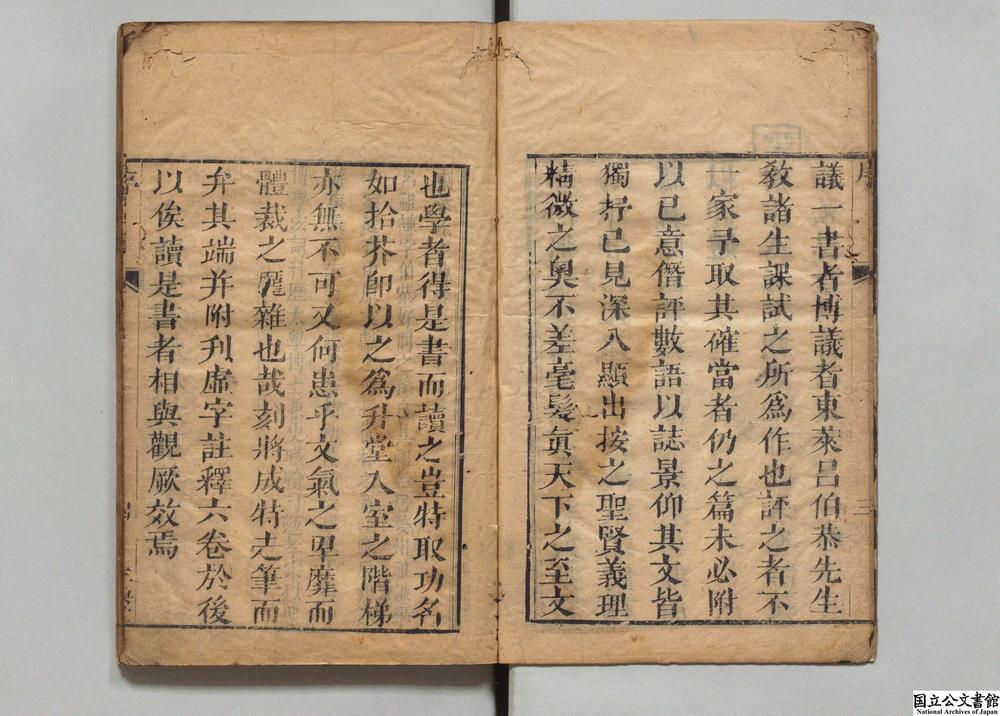 議一書者博議者東萊呂伯恭先生
敎諸生課試之所爲作也評之者不
一家予取其確當者仍之篇末必附
以己意僭評數語以誌景仰其文皆
獨抒己見深入顯出按之聖賢義理
精微之奧不差毫髮眞天下之至文
也學者得是書而讀之豈特取功名
如拾芥卽以之爲升堂入室之階梯
亦無不可又何患乎文氣之卑靡而
體裁之龎雜也哉刻將成特走筆而
弁其端并附刊虛字註釋六卷於後
以俟讀是書者相與觀厥效焉
序
三
国立公文書館
National Archives of Japan